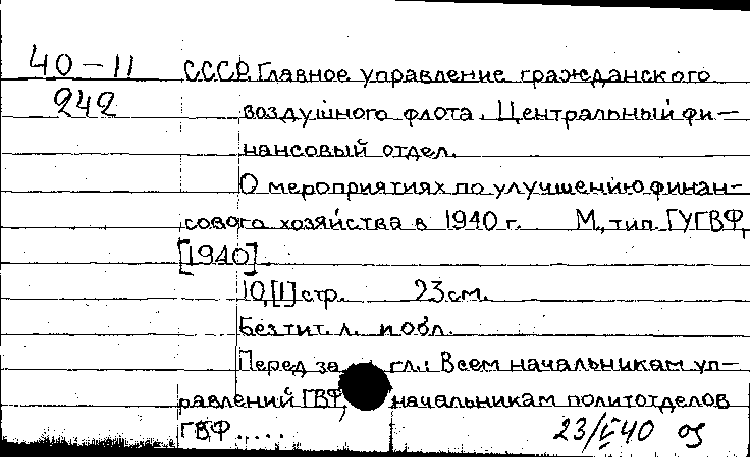 40-11 С.С.С.Р. Главное управление гражданского
242 воздушного флота. Центральный фи-
нансовый отдел.
О мероприятиях по улучшению финан-
сового хозяйства в 1940 г. М., тип. ГУГВФ,
[1940].
10,[1] стр. 23 см.
Без тит. л. и обл.
Перед загл.: Всем начальникам уп-
равлений ГВФ, начальникам политотделов
ГВФ.....
23/II 40